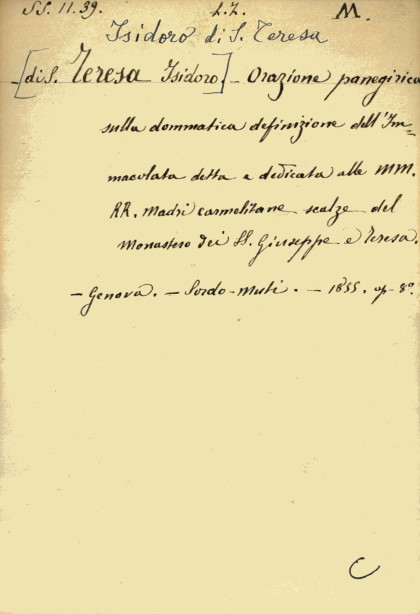 SS. 11. 39. L.Z. M.
Isidoro di S. Teresa
[di S. Teresa Isidoro] - Orazione panegirica
sulla dommatica definizione dell'Im=
macolata detta e dedicata alle MM.
RR. Madri carmelitane scalze del
Monastero dei SS. Giuseppe e Teresa.
- Genova. - Sordo-Muti. - 1855. op. 8º.
C